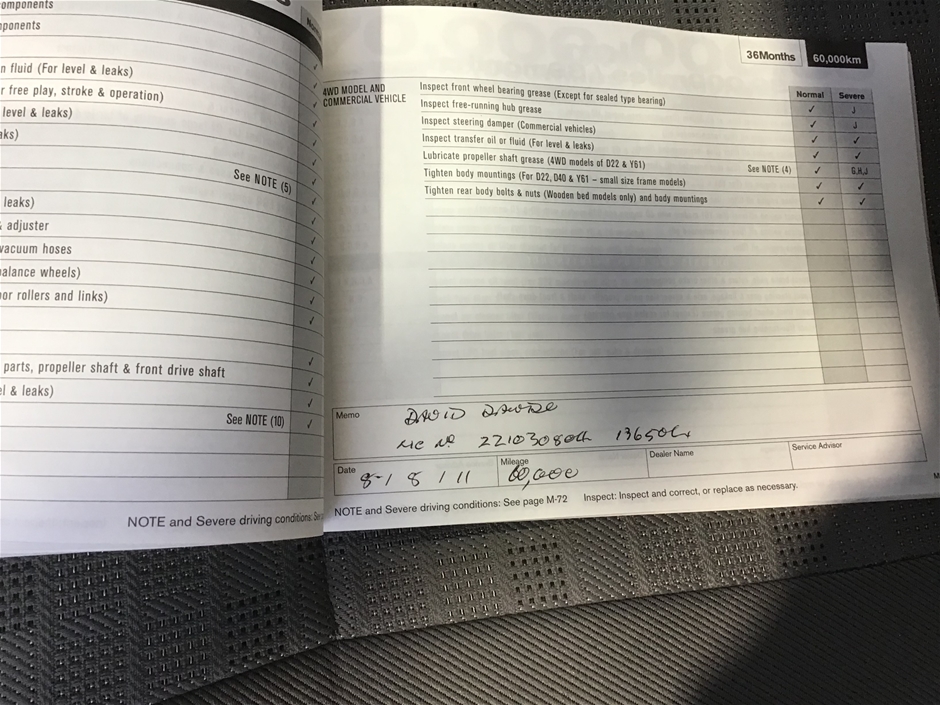 omponents
ponents
n fluid (For level & leaks)
r free play, stroke & operation)
level & leaks)
aks)
See NOTE (5)
leaks)
adjuster
vacuum hoses
balance wheels)
or rollers and links)
parts, propeller shaft & front drive shaft
el & leaks)
See NOTE (10)
NOTE and Severe driving conditions: See
36Months 60,000km
4WD MODEL AND
COMMERCIAL VEHICLE
Normal Severe
Inspect front wheel bearing grease (Except for sealed type bearing) ✓ J
Inspect free-running hub grease ✓ J
Inspect steering damper (Commercial vehicles) ✓ ✓
Inspect transfer oil or fluid (For level & leaks) ✓ ✓
Lubricate propeller shaft grease (4WD models of D22 & Y61) See NOTE (4) ✓ G,H,J
Tighten body mountings (For D22, D40 & Y61 – small size frame models) ✓ ✓
Tighten rear body bolts & nuts (Wooden bed models only) and body mountings ✓ ✓
Memo DAVID
Date 8-1 8 / 11 Mileage 60,000 Dealer Name Service Advisor
NOTE and Severe driving conditions: See page M-72 Inspect: Inspect and correct, or replace as necessary.